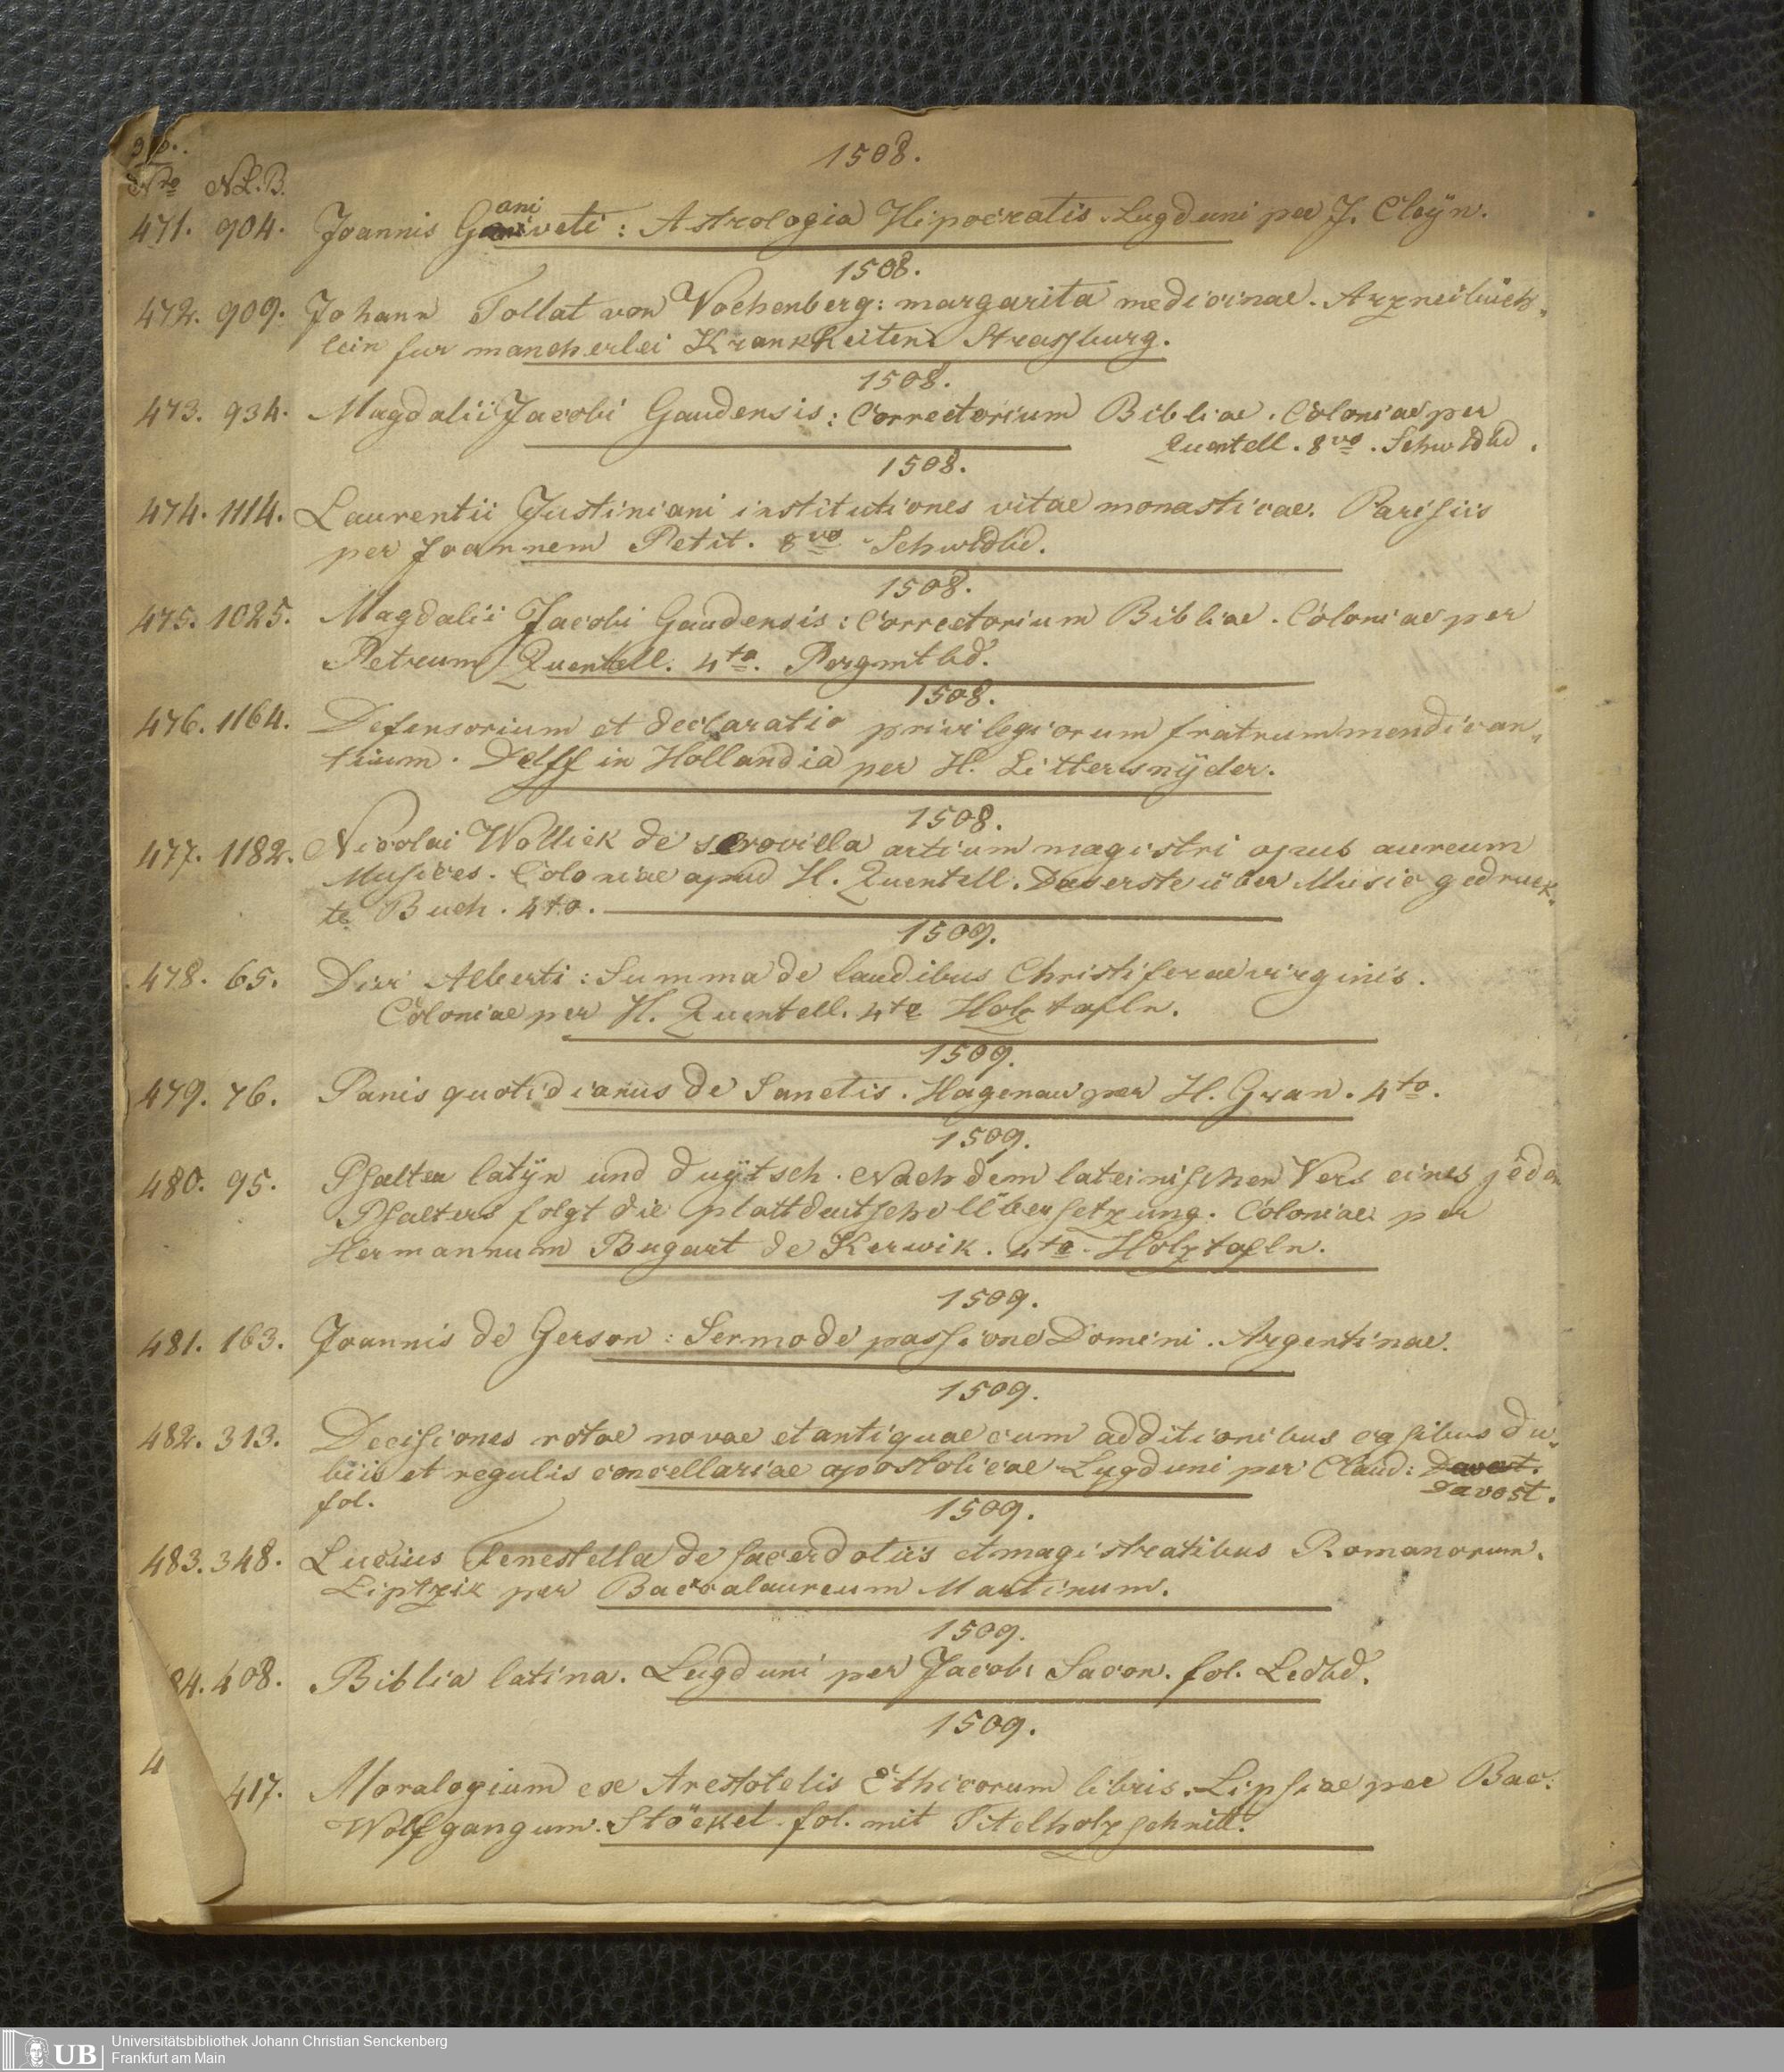 1508.
Nro N.L.B.
471. 904. Joannis Ganiveti: Astrologia Hipocratis. Lugduni per J. Cleÿn.
1508.
472. 909. Johann Tollat von Vochenberg: margarita medicinae. Arzneibüch„
lein fur mancherlei Krankheiten. Strasburg.
1508.
473. 934. Magdalii Jacobi Gaudensis: Correctorium Bibliae. Coloniae per
Quentell. 8vo. Schwldbd.
1508.
474. 1114. Laurentii Justiniani institutiones vitae monasticae. Parisiis
per Joannem Petit. 8vo Schwldbd.
1508.
475. 1025. Magdalii Jacobi Gaudensis: Correctorium Bibliae. Coloniae per
Petrum Quentell. 4to. Pergmtbd.
1508.
476. 1164. Defensorium et declaratio privilegiorum fratrum mendican„
tium. Delff in Hollandia per H. Littersnÿder.
1508.
477. 1182. Nicolai Wollick de serovilla artium magistri opus aureum
Musices. Coloniae apud H. Quentell. Das erste über Music gedruck„
te Buch. 4to.
1509.
478. 65. Divi Alberti: Summa de laudibus Christiferae virginis.
Coloniae per H. Quentell. 4to Holztafln.
1509.
479. 76. Panis quotidianus de Sanctis. Hagenau per H. Gran. 4to.
1509.
480. 95. Psalter latÿn und duÿtsch. Nach dem lateinischen Vers eines jeden
Psalters folgt die plattdeutsche Übersetzung. Coloniae per
Hermannum Bugart de Kerwik. 4to. Holztafln.
1509.
481. 163. Joannis de Gerson: Sermo de passione Domini. Argentinae.
1509.
482. 313. Decisiones rotae novae et antiquae cum additionibus casibus du„
biis et regulis cancellariae apostolicae Lugduni per Claud: Davost.
Davost.
fol.
1509.
483. 348. Lucius Fenestella de sacerdotiis et magistratibus Romanorum.
Liptzik per Baccalaureum Martinum.
1509.
84. 408. Biblia latina. Lugduni per Jacobi Sacon. fol. Ledbd.
1509.
4 417. Moralogium ex Arestotelis Ethicorum libris. Lipsiae per Bac:
Wolfgangum Stöckel. fol. mit Titelholzschnitt.
UB
Universitätsbibliothek Johann Christian Senckenberg
Frankfurt am Main